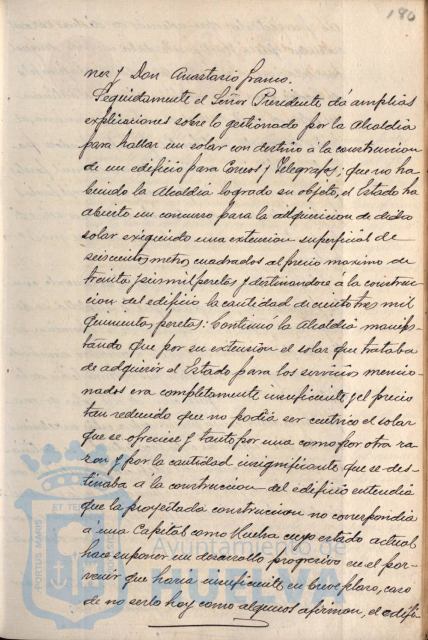 180
nez y Don Anastasio Franco.
Seguidamente el Señor Presidente dá amplias
explicaciones sobre lo gestionado por la Alcaldia
para hallar un solar con destino á la construccion
de un edificio para Correos y Telegrafos; que no ha
biendo la Alcaldia logrado su objeto, el Estado ha
abierto un concurso para la adquisicion de dicho
solar exigiendo una extension superficial de
seiscientos metros cuadrados al precio maximo de
treinta y seis mil pesetas y destinandose á la construc-
cion del edificio la cantidad de ciento tres mil
quinientas pesetas: Continuó la Alcaldia manifes-
tando que por su extension el solar que trataba
de adquirir el Estado para los servicios mencio-
nados era completamente insuficiente y el precio
tan reducido que no podia ser centrico el solar
que se ofreciese y tanto por una como por otra ra-
zon y por la cantidad insignificante que se des-
tinaba a la construccion del edificio entendia
que la proyectada construccion no correspondia
á una Capital como Huelva cuyo estado actual
hace suponer un desarrollo progresivo en el por-
venir que haria insuficiente en breve plazo, caso
de no serlo hoy como algunos afirman, el edifi-
PORTUS MARIS ET TE
Ayuntamiento de
HUELVA